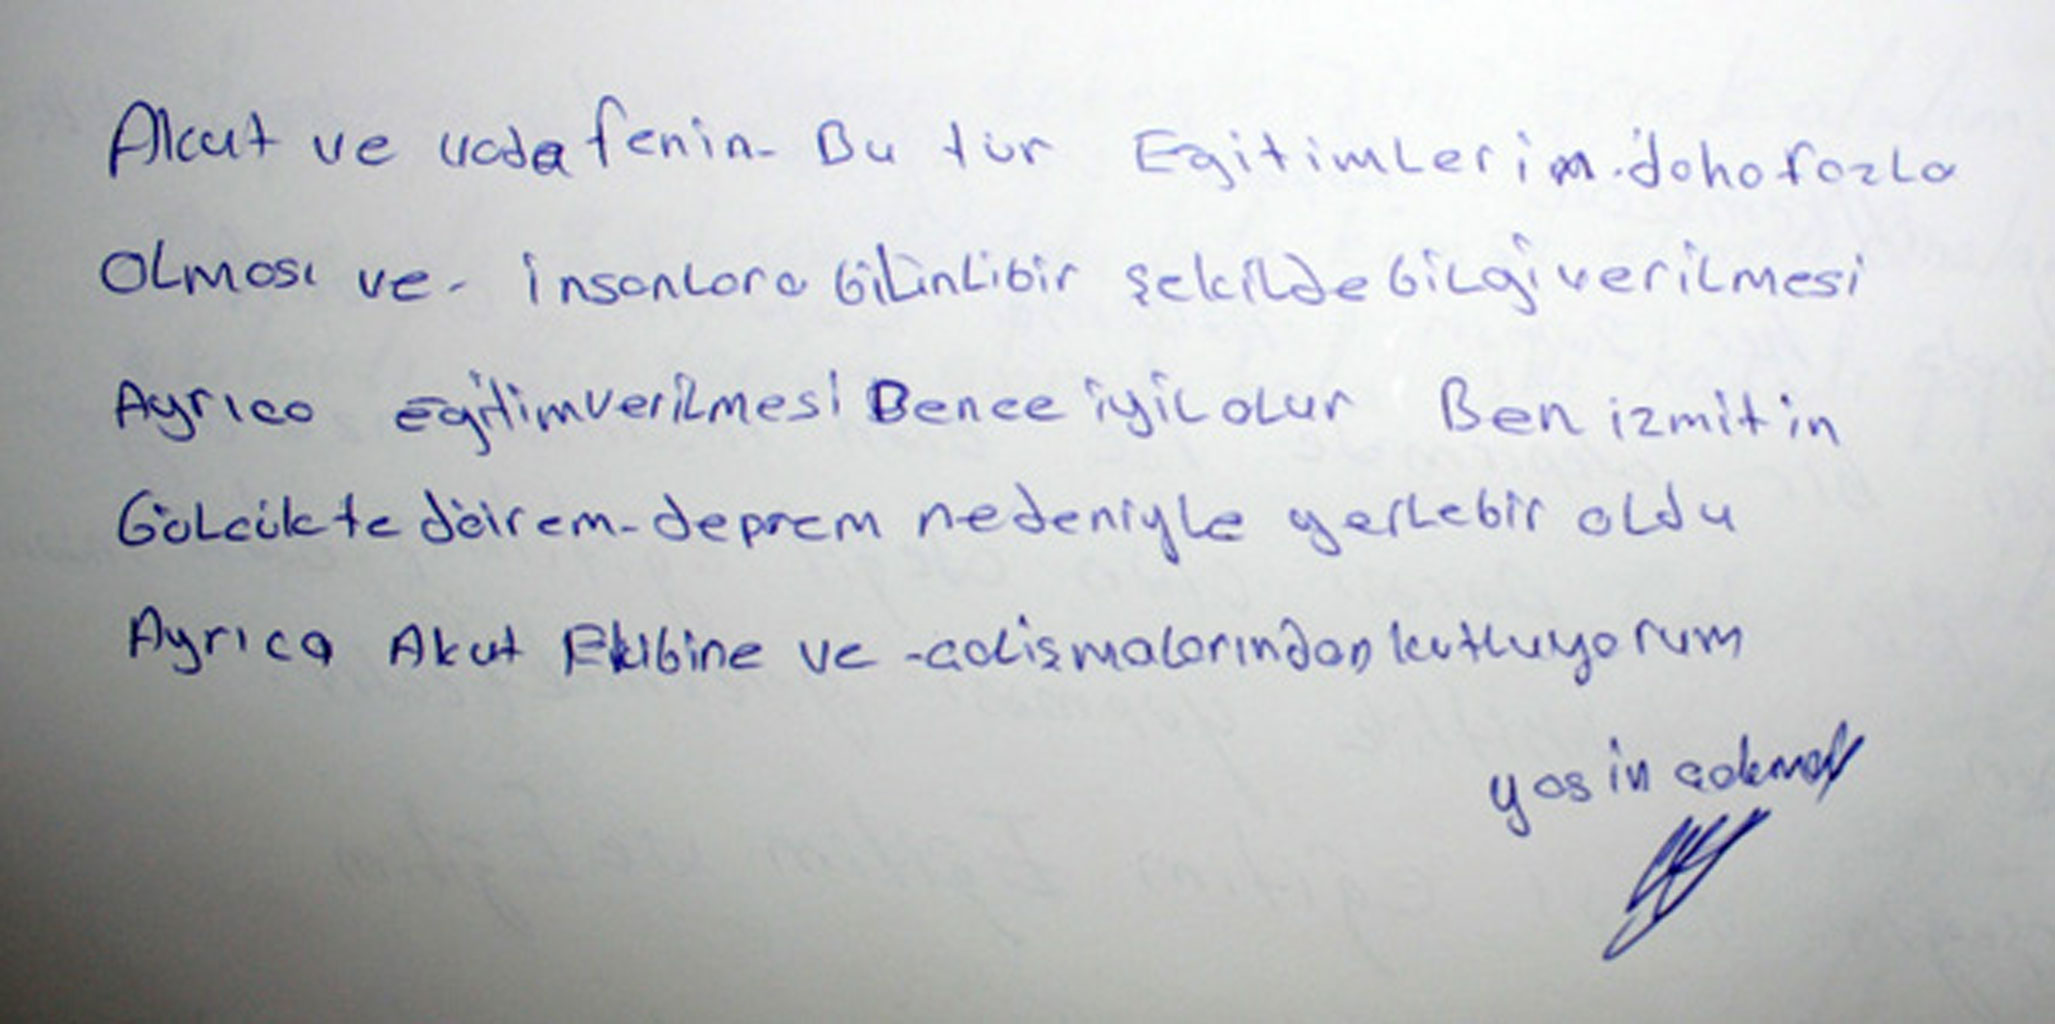 Akut ve vodafenin- Bu tür Egitimlerin daha fazla
Olması ve- insanlara bilinlibir şekilde bilgi verilmesi
Ayrıca egitimverilmesi Bence iyilolur Ben izmitin
Gölcükte dairem-deprem nedeniyle yerlebir oldu
Ayrıca Akut Ekibine ve -calişmalarından kutluyorum
yasin